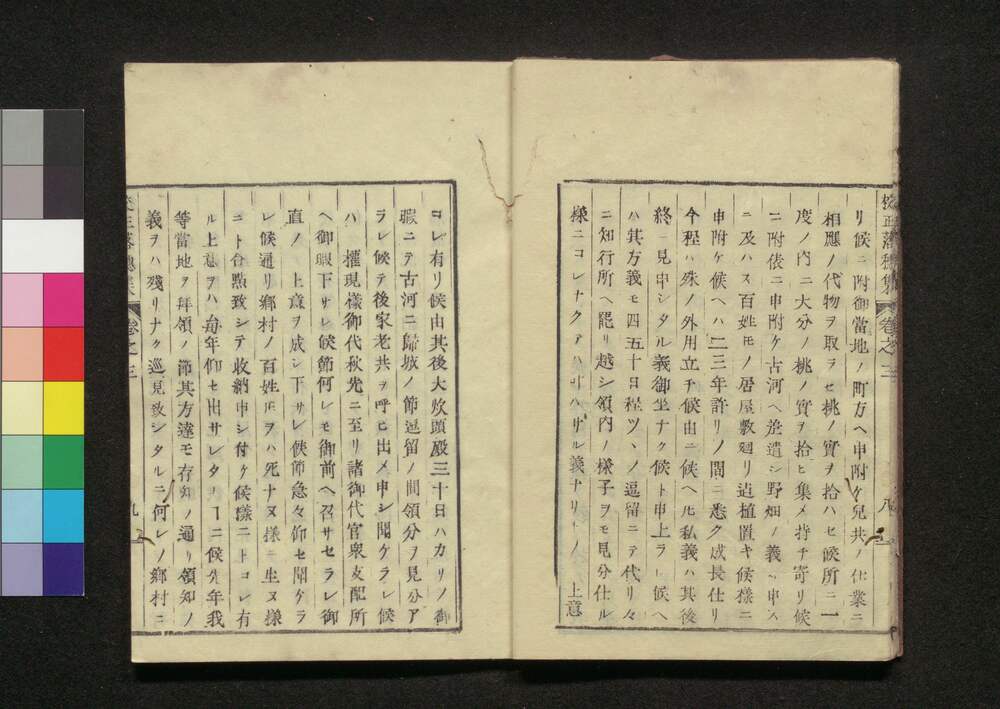 リ候ニ附御當地ノ町方ヘ申附ケ兒共ノ仕業ニ
相應ノ代物ヲ取ラセ桃ノ實ヲ拾ハセ候所ニ一
度ノ内ニ大分ノ桃ノ實ヲ拾ヒ集メ持チ寄リ候
ニ附俵ニ申附ケ古河ヘ差遣シ野畑ノ義ハ申ス
ニ及ハス百姓モノ居屋敷廻リ迠植置キ候樣ニ
申附ケ候ヘハ二三年許リノ間ニ悉ク成長仕リ
今程ハ殊ノ外用立チ候由ニ候ヘ𪜈私義ハ其後
終ニ見申シタル義御坐ナク候ト申上ラレ候ヘ
ハ其方義モ四五十日程ツヽノ逼留ニテ代リ々
ニ知行所ヘ罷リ越シ領内ノ樣子ヲモ見分仕ル
樣ニコレナクテハ叶ハサル義ナリトノ 上意
校正落穗集 卷之三 八
コレ有リ候由其後大炊頭殿三十日ハカリノ御
暇ニテ古河ニ歸城ノ節逗留ノ間領分ヲ見分ア
ラレ候テ後家老共ヲ呼ヒ出メ申シ聞ケラレ候
ハ 權現樣御代秋先ニ至リ諸御代官衆支配所
ヘ御暇下サレ候節何レモ御前ヘ召サセラレ御
直ノ 上意ヲ成シ下サレ候節急々仰セ聞ケラ
レ候通リ郷村ノ百姓𪜈ヲハ死ナヌ樣ニ生ヌ樣
ニト合點致シテ收納申シ付ケ候樣ニトコレ有
ル上意ヲハ毎年仰セ出サレタリ ニ候先年我
等當地ヲ拜領ノ節其方達モ存知ノ通リ領知ノ
義ヲハ殘リナク巡見致シタルニ何レノ郷村ニ
卷之三 九